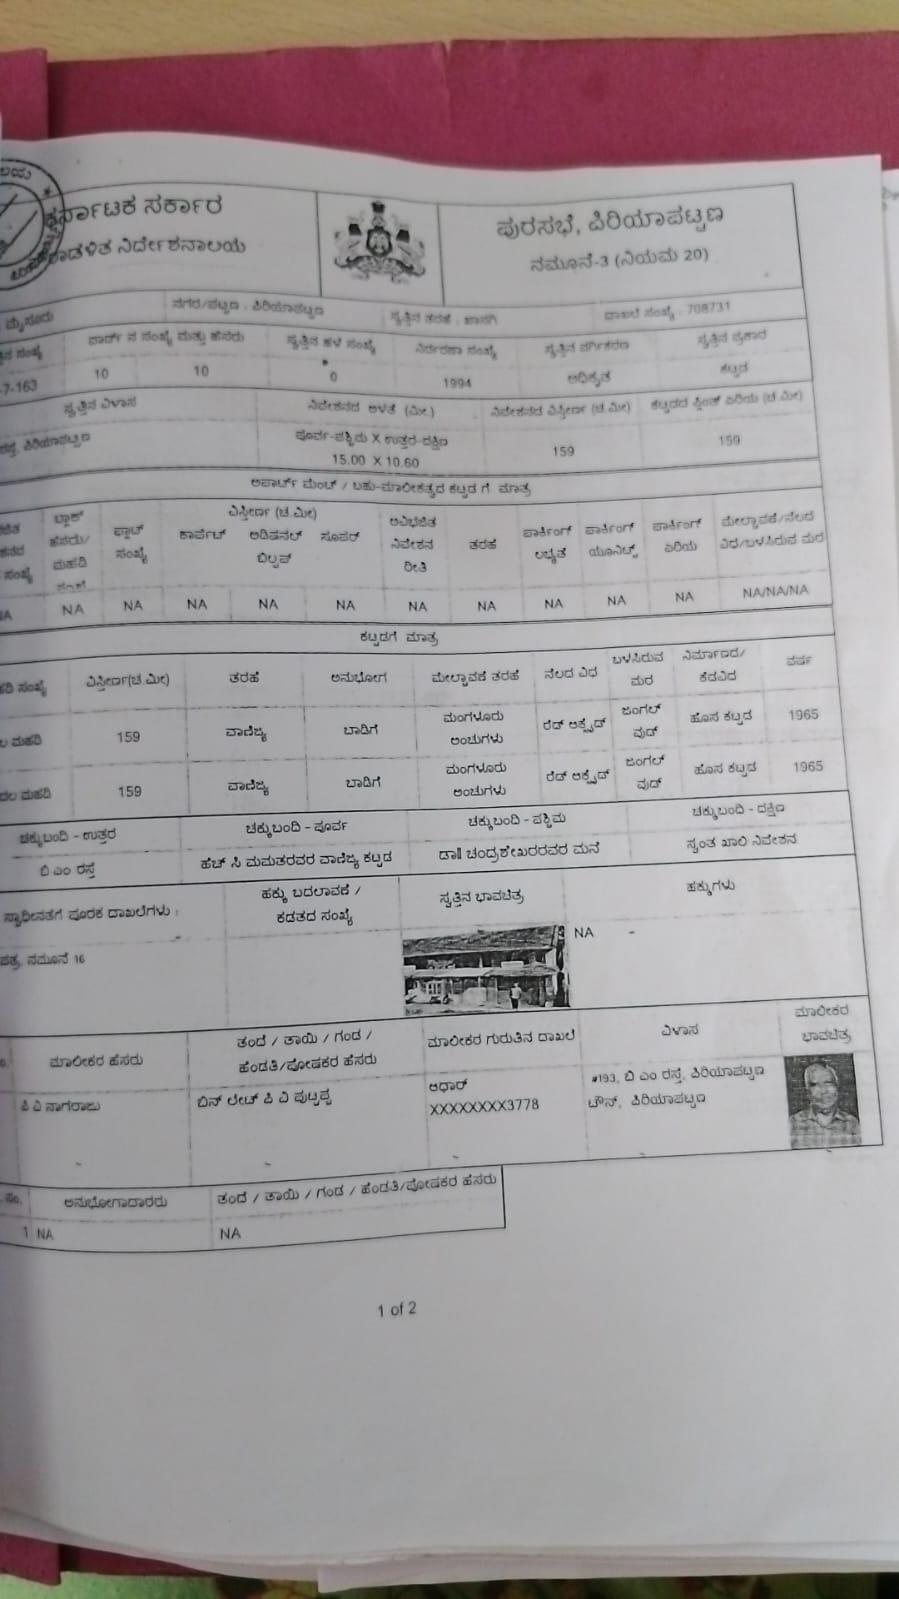 ಕರ್ನಾಟಕ ಸರ್ಕಾರ
ನಿರ್ದೇಶನಾಲಯ
ಪುರಸಭೆ, ಪಿರಿಯಾಪಟ್ಟಣ
ನಮೂನೆ-3 (ನಿಯಮ 20)
ಮೈಸೂರು
ನಗರ/ಪಟ್ಟಣ : ಪಿರಿಯಾಪಟ್ಟಣ
ಸ್ವತ್ತಿನ ತರಹೆ : ಖಾಸಗಿ
ದಾಖಲೆ ಸಂಖ್ಯೆ : 708731
ಸಂಖ್ಯೆ
ವಾರ್ಡ್ ನ ಸಂಖ್ಯೆ ಮತ್ತು ಹೆಸರು
ಸ್ವತ್ತಿನ ಹಳೆ ಸಂಖ್ಯೆ
ನಿರ್ಧರಣಾ ಸಂಖ್ಯೆ
ಸ್ವತ್ತಿನ ವರ್ಗೀಕರಣ
ಸ್ವತ್ತಿನ ಪ್ರಕಾರ
-7-163
10
10
0
1994
ಅಧಿಕೃತ
ಕಟ್ಟಡ
ಸ್ವತ್ತಿನ ವಿಳಾಸ
ನಿವೇಶನದ ಅಳತೆ (ಮೀ.)
ನಿವೇಶನದ ವಿಸ್ತೀರ್ಣ (ಚ.ಮೀ)
ಕಟ್ಟಡದ ಪ್ಲಿಂತ್ ಏರಿಯ (ಚ.ಮೀ)
ರಸ್ತೆ, ಪಿರಿಯಾಪಟ್ಟಣ
ಪೂರ್ವ-ಪಶ್ಚಿಮ X ಉತ್ತರ-ದಕ್ಷಿಣ
15.00 X 10.60
159
159
ಅಪಾರ್ಟ್ ಮೆಂಟ್ / ಬಹು-ಮಾಲೀಕತ್ವದ ಕಟ್ಟಡ ಗೆ ಮಾತ್ರ
ಸಂಖ್ಯೆ
ಬ್ಲಾಕ್
ಹೆಸರು/
ಮಹಡಿ
ಸಂಖ್ಯೆ
ಫ್ಲಾಟ್
ಸಂಖ್ಯೆ
ವಿಸ್ತೀರ್ಣ (ಚ.ಮೀ)
ಕಾರ್ಪೆಟ್ ಅಡಿಷನಲ್ ಸೂಪರ್
ಬಿಲ್ಟಪ್
ಅವಿಭಜಿತ
ನಿವೇಶನ
ರೀತಿ
ತರಹೆ
ಪಾರ್ಕಿಂಗ್
ಲಭ್ಯತೆ
ಪಾರ್ಕಿಂಗ್
ಯೂನಿಟ್ಸ್
ಪಾರ್ಕಿಂಗ್
ಏರಿಯ
ಮೇಲ್ಚಾವಣಿ/ನೆಲದ
ವಿಧ/ಬಳಸಿರುವ ಮರ
NA
NA
NA
NA
NA
NA
NA
NA
NA
NA
NA/NA/NA
ಕಟ್ಟಡಗೆ ಮಾತ್ರ
ಸಂಖ್ಯೆ
ವಿಸ್ತೀರ್ಣ(ಚ.ಮೀ)
ತರಹೆ
ಅನುಭೋಗ
ಮೇಲ್ಚಾವಣಿ ತರಹೆ
ನೆಲದ ವಿಧ
ಬಳಸಿರುವ
ಮರ
ನಿರ್ಮಾಣದ/
ಕೆಡವಿದ
ವರ್ಷ
ಮಹಡಿ
159
ವಾಣಿಜ್ಯ
ಬಾಡಿಗೆ
ಮಂಗಳೂರು
ಅಂಚುಗಳು
ರೆಡ್ ಆಕ್ಸೈಡ್
ಜಂಗಲ್
ವುಡ್
ಹೊಸ ಕಟ್ಟಡ
1965
ಮಹಡಿ
159
ವಾಣಿಜ್ಯ
ಬಾಡಿಗೆ
ಮಂಗಳೂರು
ಅಂಚುಗಳು
ರೆಡ್ ಆಕ್ಸೈಡ್
ಜಂಗಲ್
ವುಡ್
ಹೊಸ ಕಟ್ಟಡ
1965
ಚಕ್ಕುಬಂದಿ - ಉತ್ತರ
ಚಕ್ಕುಬಂದಿ - ಪೂರ್ವ
ಚಕ್ಕುಬಂದಿ - ಪಶ್ಚಿಮ
ಚಕ್ಕುಬಂದಿ - ದಕ್ಷಿಣ
ಬಿ ಎಂ ರಸ್ತೆ
ಹೆಚ್ ಸಿ ಮಮತರವರ ವಾಣಿಜ್ಯ ಕಟ್ಟಡ
ಡಾ|| ಚಂದ್ರಶೇಖರರವರ ಮನೆ
ಸ್ವಂತ ಖಾಲಿ ನಿವೇಶನ
ಸ್ವಾಧೀನತೆಗೆ ಪೂರಕ ದಾಖಲೆಗಳು :
ಹಕ್ಕು ಬದಲಾವಣೆ /
ಕಡತದ ಸಂಖ್ಯೆ
ಸ್ವತ್ತಿನ ಭಾವಚಿತ್ರ
ಹಕ್ಕುಗಳು
ಪತ್ರ, ನಮೂನೆ 16
NA
ಮಾಲೀಕರ ಹೆಸರು
ತಂದೆ / ತಾಯಿ / ಗಂಡ /
ಹೆಂಡತಿ/ಪೋಷಕರ ಹೆಸರು
ಮಾಲೀಕರ ಗುರುತಿನ ದಾಖಲೆ
ವಿಳಾಸ
ಮಾಲೀಕರ
ಭಾವಚಿತ್ರ
ಪಿ ವಿ ನಾಗರಾಜು
ಬಿನ್ ಲೇಟ್ ಪಿ ವಿ ಪುಟ್ಟಪ್ಪ
ಆಧಾರ್
XXXXXXXX3778
#193, ಬಿ ಎಂ ರಸ್ತೆ, ಪಿರಿಯಾಪಟ್ಟಣ
ಟೌನ್, ಪಿರಿಯಾಪಟ್ಟಣ
ಸಂ.
ಅನುಭೋಗದಾರರು
ತಂದೆ / ತಾಯಿ / ಗಂಡ / ಹೆಂಡತಿ/ಪೋಷಕರ ಹೆಸರು
1 NA
NA
1 of 2